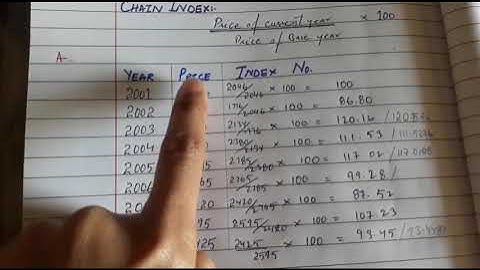 CHAIN INDEX:-
Price of current year × 100
Price of Base year
A-
YEAR PRICE INDEX No.
2001 2046/2046 × 100 = 100
2002 1776/2046 × 100 = 86.80
2003 2134/1776 × 100 = 120.16
2004 2380/2134 × 100 = 111.53
2005 2785/2380 × 100 = 117.02
2765/2785 × 100 = 99.28
20 2420/2765 × 100 = 87.52
95 2595/2420 × 100 = 107.23
425 2425/2595 × 100 = 93.45